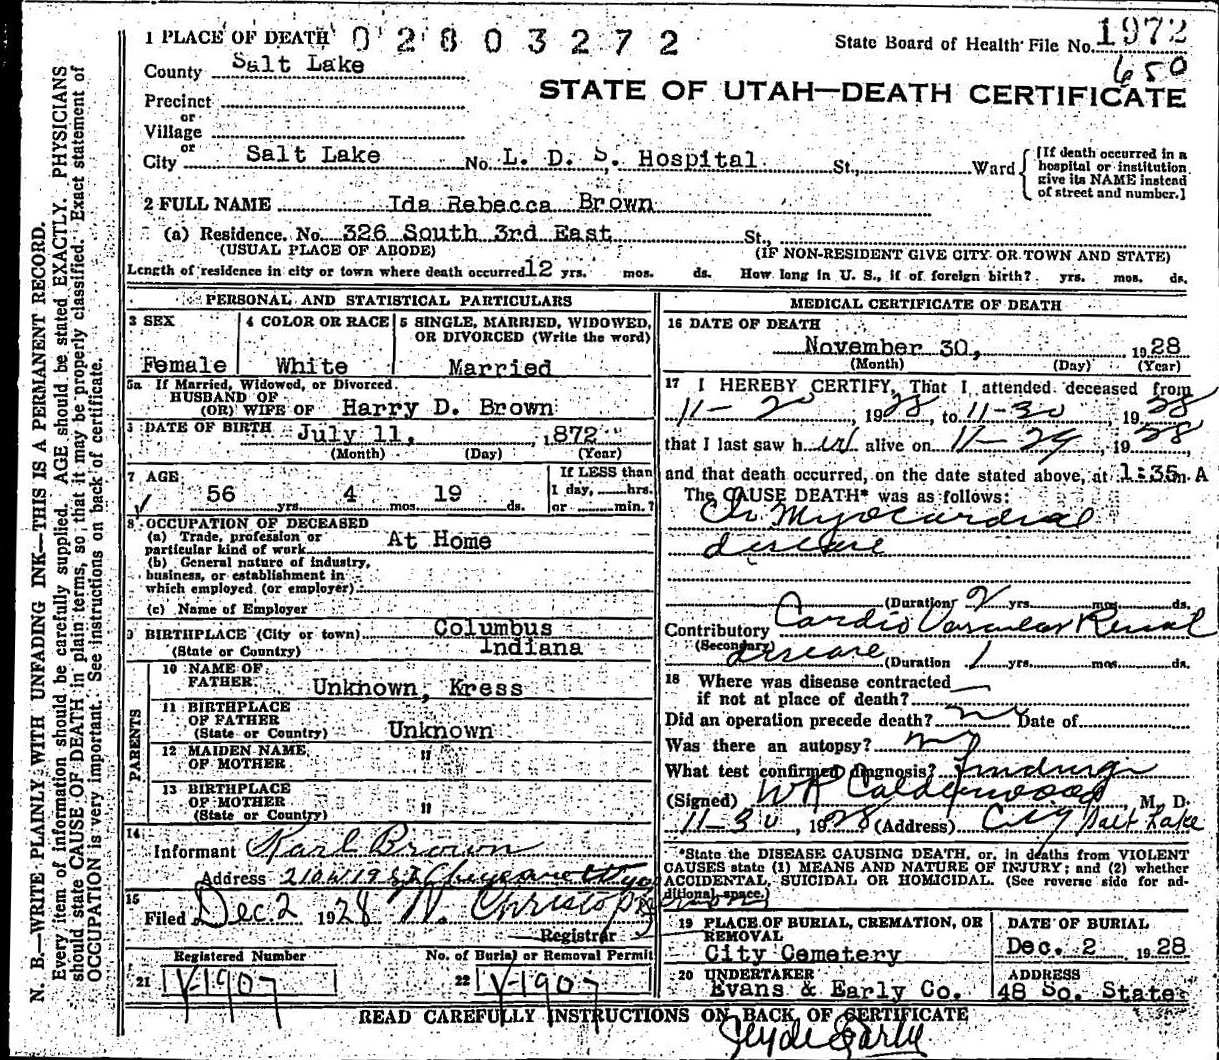 1 PLACE OF DEATH 02803272
State Board of Health File No. 1972
County Salt Lake
650
STATE OF UTAH—DEATH CERTIFICATE
Precinct
or
Village
or
City Salt Lake No. L. D. S. Hospital St., Ward
[If death occurred in a
hospital or institution
give its NAME instead
of street and number.]
2 FULL NAME Ida Rebecca Brown
(a) Residence. No. 326 South 3rd East St.,
(USUAL PLACE OF ABODE) (IF NON-RESIDENT GIVE CITY OR TOWN AND STATE)
Length of residence in city or town where death occurred 12 yrs. mos. ds. How long in U. S., if of foreign birth? yrs. mos. ds.
PERSONAL AND STATISTICAL PARTICULARS
3 SEX
Female
4 COLOR OR RACE
White
5 SINGLE, MARRIED, WIDOWED,
OR DIVORCED (Write the word)
Married
5a If Married, Widowed, or Divorced
HUSBAND OF
(OR) WIFE OF Harry D. Brown
DATE OF BIRTH July 11, 1872
(Month) (Day) (Year)
7 AGE
56 yrs. 4 mos. 19 ds.
If LESS than
1 day, hrs.
or min.?
8 OCCUPATION OF DECEASED
(a) Trade, profession or
particular kind of work At Home
(b) General nature of industry,
business, or establishment in
which employed (or employer)
(c) Name of Employer
9 BIRTHPLACE (City or town) Columbus
(State or Country) Indiana
PARENTS
10 NAME OF
FATHER Unknown, Kress
11 BIRTHPLACE
OF FATHER
(State or Country) Unknown
12 MAIDEN NAME
OF MOTHER "
13 BIRTHPLACE
OF MOTHER
(State or Country) "
14
Informant Karl Brown
Address 210 W 19 St Cheyenne Wyo
15
Filed Dec. 2 1928 W. Christop
Registrar
Registered Number
21 V-1907
No. of Burial or Removal Permit
22 V-1907
MEDICAL CERTIFICATE OF DEATH
16 DATE OF DEATH
November 30, 1928
(Month) (Day) (Year)
17 I HEREBY CERTIFY, That I attended deceased from
11-20, 1928, to 11-30, 1928
that I last saw her alive on 11-29, 1928,
and that death occurred, on the date stated above, at 1:35 m. A
The CAUSE DEATH* was as follows:
Ch Myocardial
disease
(Duration) 2 yrs. mos. ds.
Contributory Cardio Vascular Renal
(Secondary) disease (Duration 1 yrs. mos. ds.
18 Where was disease contracted
if not at place of death?
Did an operation precede death? no Date of
Was there an autopsy? no
What test confirmed diagnosis? Findings
(Signed) W R Calderwood, M. D.
11-30, 1928 (Address) City Salt Lake
*State the DISEASE CAUSING DEATH, or, in deaths from VIOLENT
CAUSES state (1) MEANS AND NATURE OF INJURY; and (2) whether
ACCIDENTAL, SUICIDAL OR HOMICIDAL. (See reverse side for ad-
ditional space.)
19 PLACE OF BURIAL, CREMATION, OR
REMOVAL
City Cemetery
DATE OF BURIAL
Dec. 2 1928
20 UNDERTAKER
Evans & Early Co.
ADDRESS
48 So. State
READ CAREFULLY INSTRUCTIONS ON BACK OF CERTIFICATE
Clyde Early
N. B.—WRITE PLAINLY WITH UNFADING INK—THIS IS A PERMANENT RECORD.
Every item of information should be carefully supplied. AGE should be stated EXACTLY. PHYSICIANS
should state CAUSE OF DEATH in plain terms, so that it may be properly classified. Exact statement of
OCCUPATION is very important. See instructions on back of certificate.